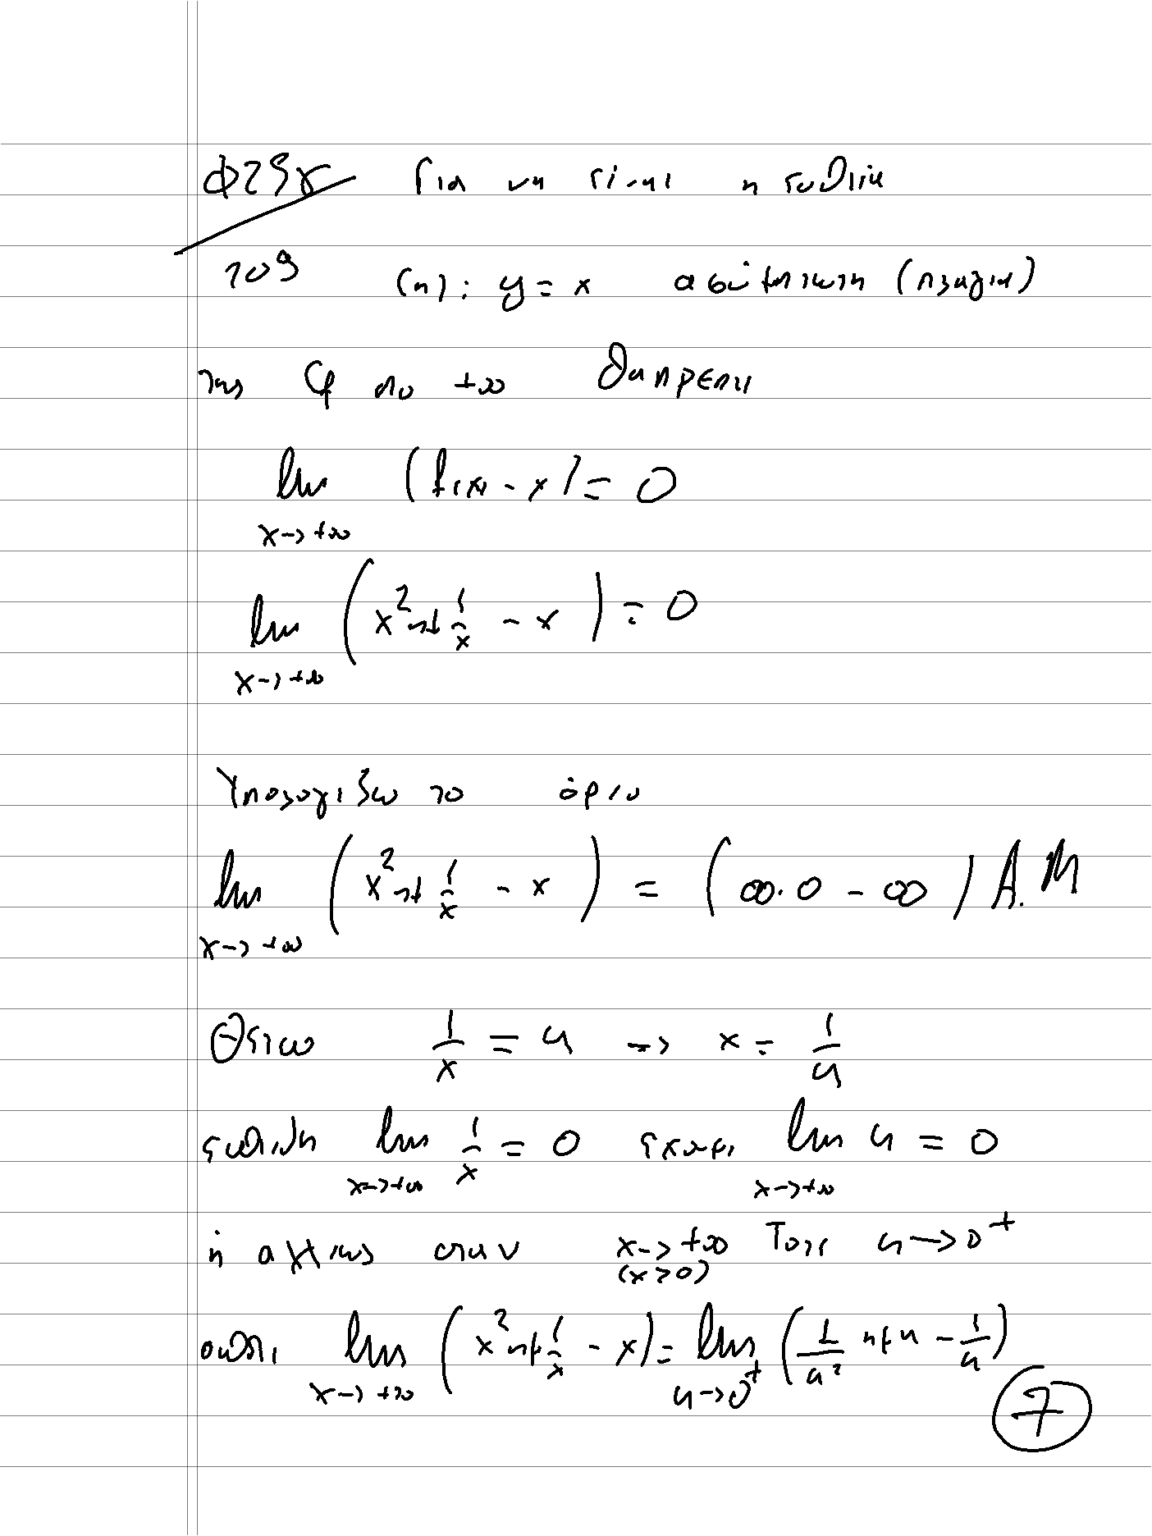 Φ259 Για να είναι η ευθεία
109 (η): y = x ασύμπτωτη (πλάγια)
της Cf στο +∞ θα πρέπει
lim x→+∞ (f(x) - x) = 0
lim x→+∞ (x² ημ 1/x - x) = 0
Υπολογίζω το όριο
lim x→+∞ (x² ημ 1/x - x) = (∞·0 - ∞) Α.Μ
Θέτω 1/x = u → x = 1/u
επειδή lim x→+∞ 1/x = 0 έχουμε lim x→+∞ u = 0
ή αλλιώς όταν x→+∞ (x>0) Τότε u→0⁺
οπότε lim x→+∞ (x² ημ 1/x - x) = lim u→0⁺ (1/u² ημ u - 1/u)
7